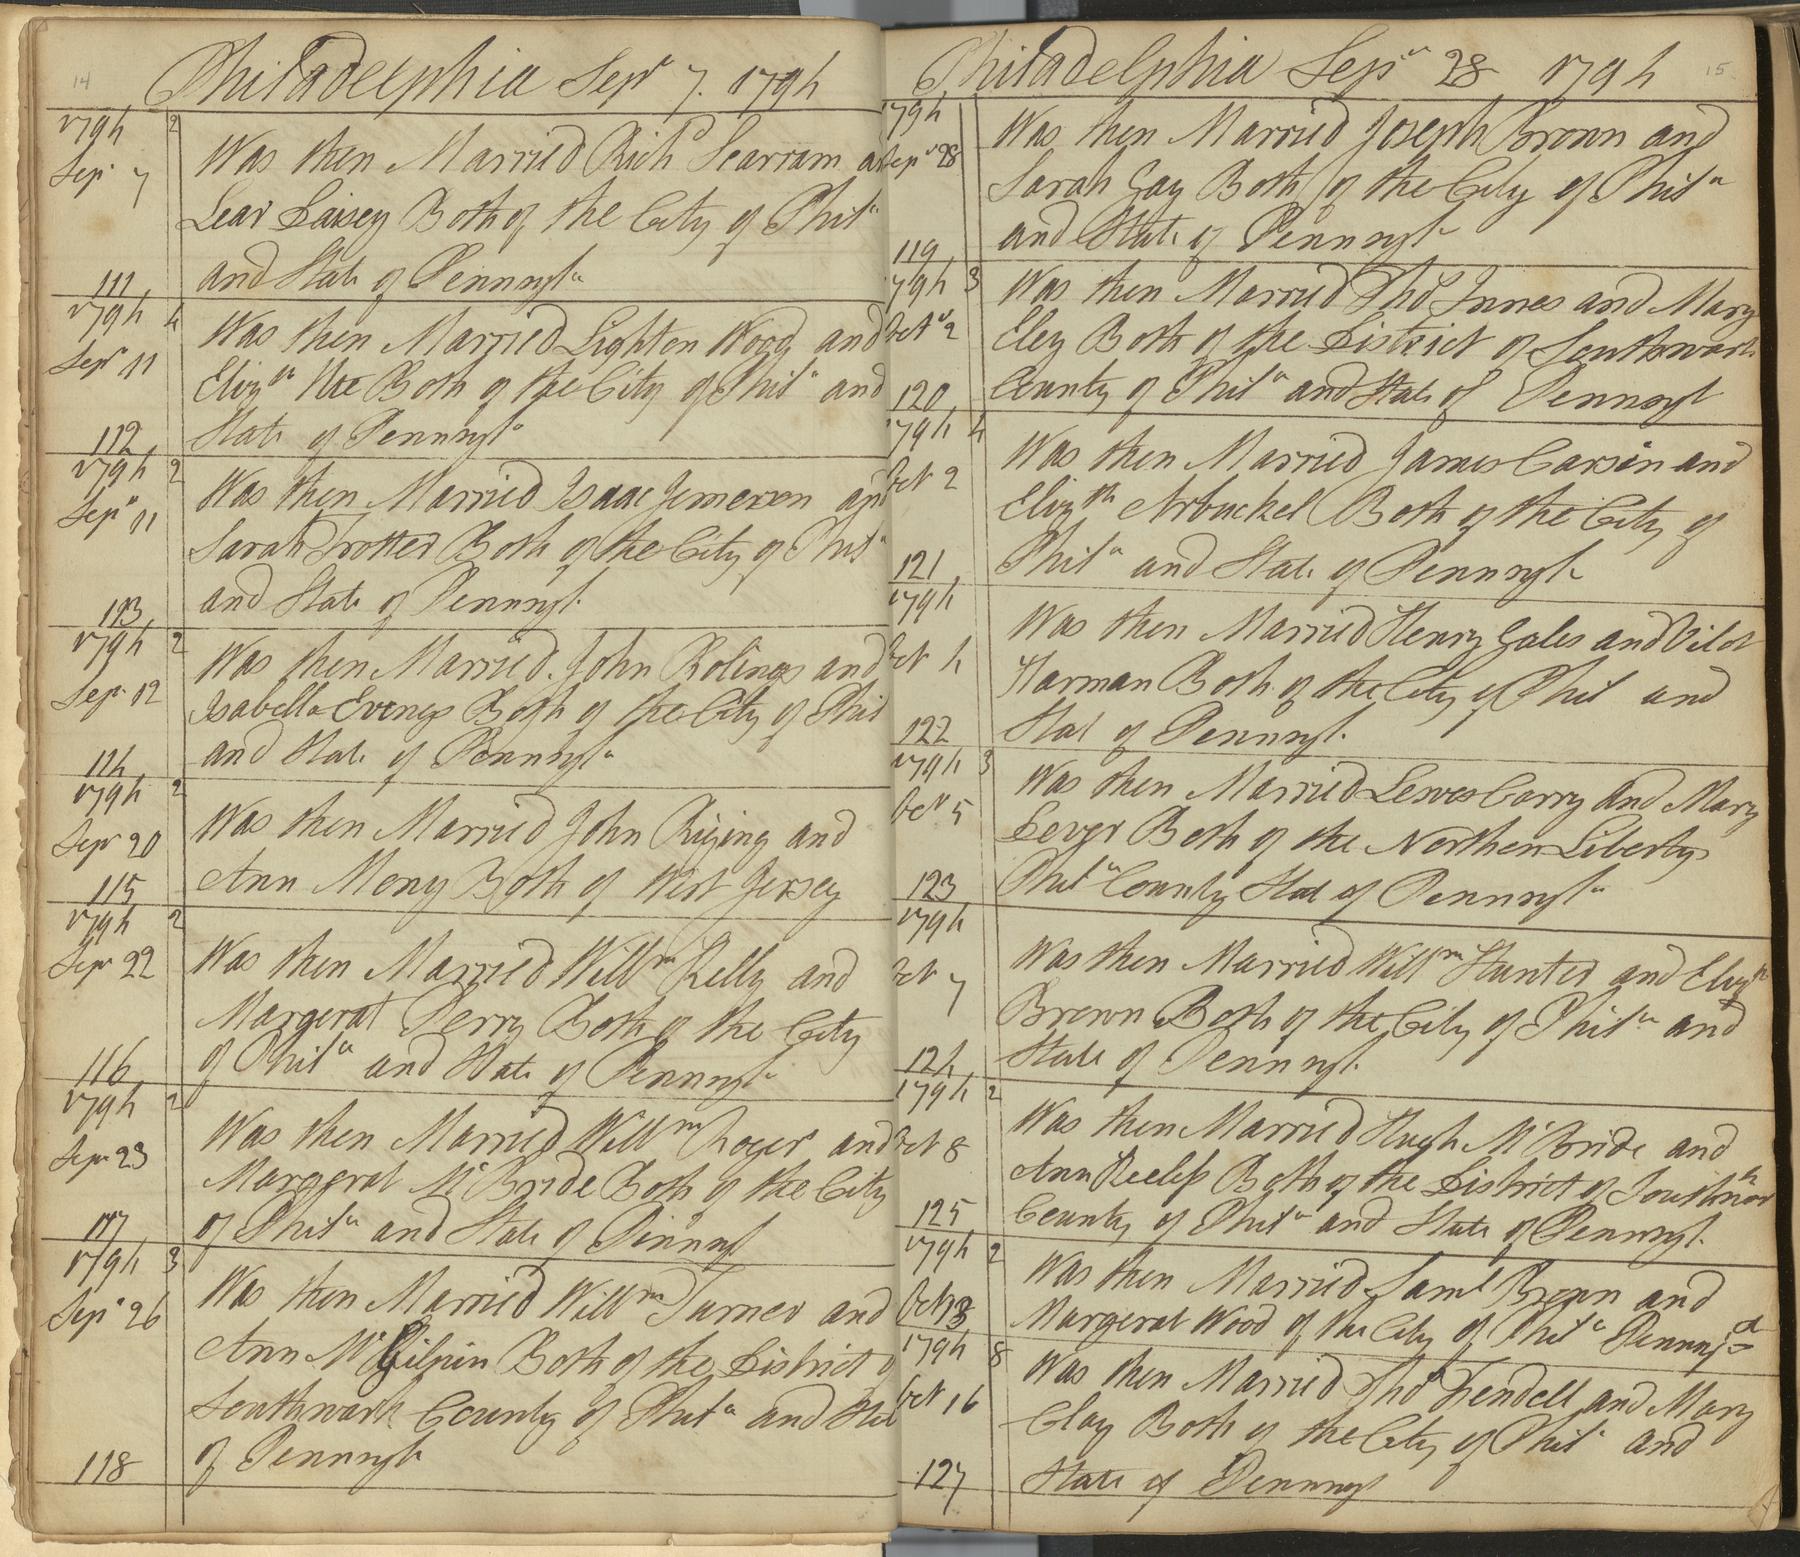 14
Philadelphia Sepr 7. 1794
1794 2
Sepr 7
Was then Married Richd Searram a
Lear Daisey Both of the City of Phila
and State of Pennsyla
111
1794 4
Sepr 11
Was then Married Lighton Wood and
Elizth Both of the City of Phila and
State of Pennsyla
112
1794 2
Sepr 11
Was then Married Isaac Jemerson and
Sarah Trotter Both of the City of Phila
and State of Pennsyl.
113
1794 2
Sepr 12
Was then Married John Rolings and
Isabella Evengs Both of the City of Phil
and State of Pennsyla
114
1794 2
Sepr 20
Was then Married John Rizing and
Ann Mony Both of West Jersey
115
1794 2
Sepr 22
Was then Married Willm Kelly and
Margerat Perry Both of the City
of Phila and State of Pennsyla
116
1794 2
Sepr 23
Was then Married Willm Roger and
Margerat McBride Both of the City
of Phila and State of Pinnsyl
117
1794 3
Sepr 26
Was then Married Willm Turner and
Ann McGilpin Both of the District of
Southwark County of Phila and Stat
of Pennsyl
118
15
Philadelphia Sepr 28 1794
1794
Sepr 28
Was then Married Joseph Brown and
Sarah Gay Both of the City of Phila
and State of Pennsyla
119
1794 3
Octr 2
Was then Married Thos Innes and Mary
Eley Both of the District of Southwark
County of Phila and State of Pennsyl
120
1794 4
Oct 2
Was then Married James Carsin and
Elizth Arbuckel Both of the City of
Phila and State of Pennsyl
121
1794
Oct 4
Was then Married Henry Gales and Vilot
Harman Both of the City of Phil and
Stat of Pennsyl.
122
1794 3
Octr 5
Was then Married Lewes Carry and Mary
Lever Both of the Northen Libertys
Phila County Stat of Pennsyla
123
1794
Oct 7
Was then Married Willm Hunter and Elizth
Brown Both of the City of Phila and
State of Pennsyl.
124
1794 2
Oct 8
Was then Married Hugh McBride and
Ann Both of the District of Southwar
County of Phila and State of Pennsyl.
125
1794 2
Oct 13
Was then Married Saml Brown and
Margerat Wood of the City of Phila Pennsy
1794 8
Oct 16
Was then Married Thos Tendell and Mary
Clay Both of the City of Phila and
State of Pennsyl
127